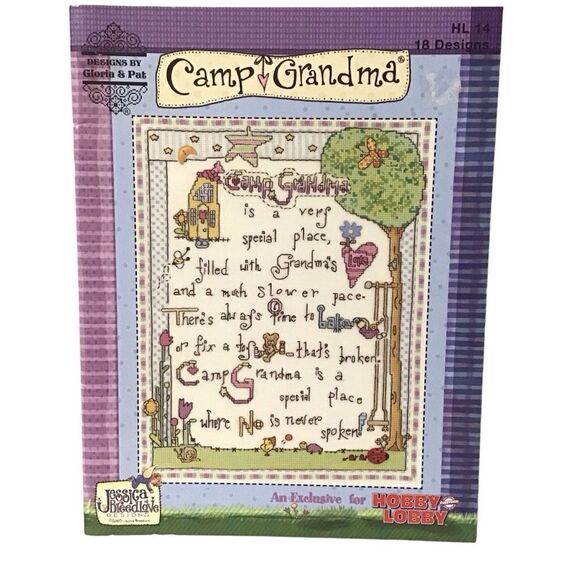 HL 14
18 Designs
DESIGNS BY
Gloria & Pat
Camp Grandma®
Camp Grandma
is a very
special place,
filled with Grandma's
Love
and a much slower pace.
There's always time to bake
or fix a toy that's broken!
Camp Grandma is a
special place
where No is never
spoken!
Jessica
Breedlove
DESIGNS
An Exclusive for HOBBY
LOBBY